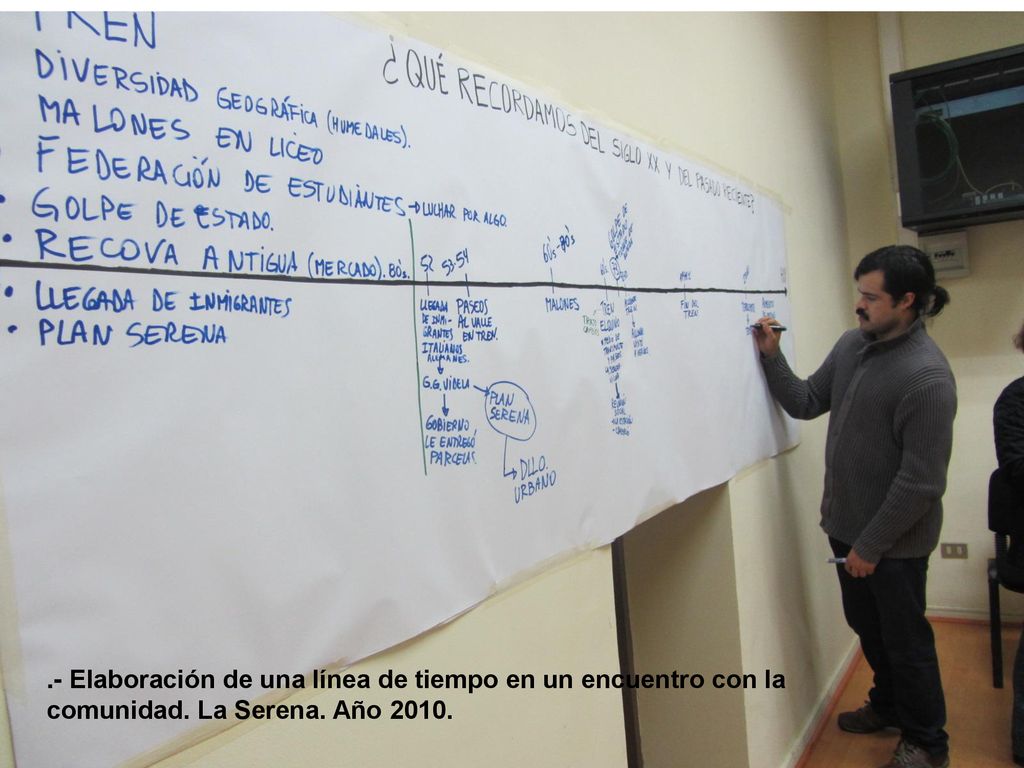 TREN
DIVERSIDAD GEOGRÁFICA (HUMEDALES).
MALONES EN LICEO
FEDERACIÓN DE ESTUDIANTES → LUCHAR POR ALGO.
• GOLPE DE ESTADO.
• RECOVA ANTIGUA (MERCADO). 80's.
• LLEGADA DE INMIGRANTES
• PLAN SERENA
¿QUÉ RECORDAMOS DEL SIGLO XX Y DEL PASADO RECIENTE?
52
LLEGADA
DE INMI-
GRANTES
ITALIANOS
ALEMANES.
G.G. VIDELA
GOBIERNO
LE ENTREGÓ
PARCELAS.
PLAN
SERENA
DLLO.
URBANO
53-54
PASEOS
AL VALLE
EN TREN.
60's-80's
MALONES
TREN
ELQUINO
FIN DEL
TREN
.- Elaboración de una línea de tiempo en un encuentro con la
comunidad. La Serena. Año 2010.